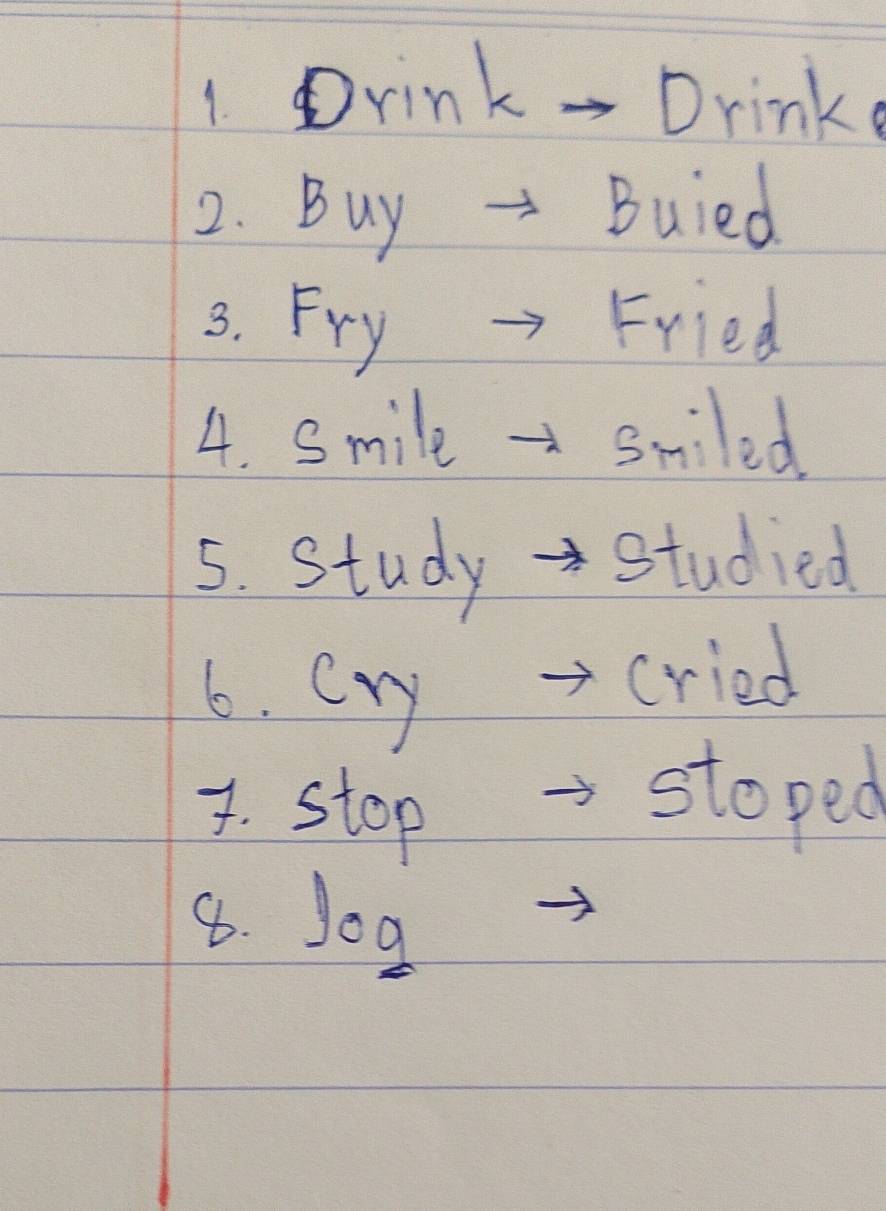 1. Drink → Drinke
2. Buy → Buied
3. Fry → Fried
4. Smile → smiled
5. Study → studied
6. Cry → cried
7. stop → stoped
8. Jog →